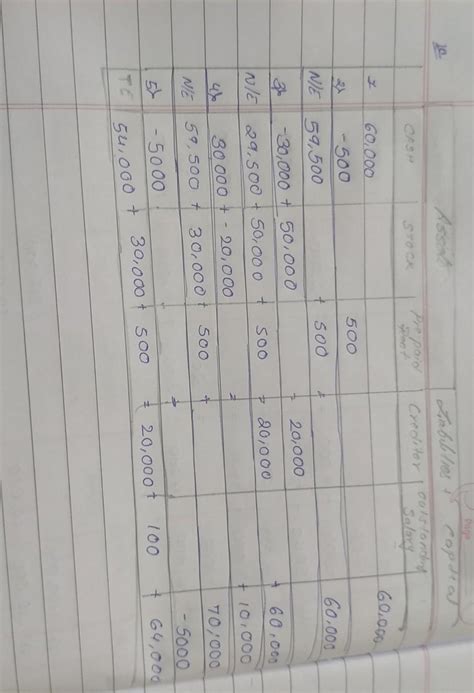 Assets Liabilities + Capital
CASH STOCK Prepaid Rent Creditor Outstanding Salary
1 60,000 60,000
2) -500 500
N/E 59,500 + 500 = 60,000
3) -30,000 + 50,000 = 20,000
N/E 29,500 + 50,000 + 500 = 20,000 + 60,000
4) 30,000 + -20,000 = + 10,000
N/E 59,500 + 30,000 + 500 + 70,000
5) -5000 + -5000
T E 54,000 + 30,000 + 500 = 20,000 + 100 + 64,000